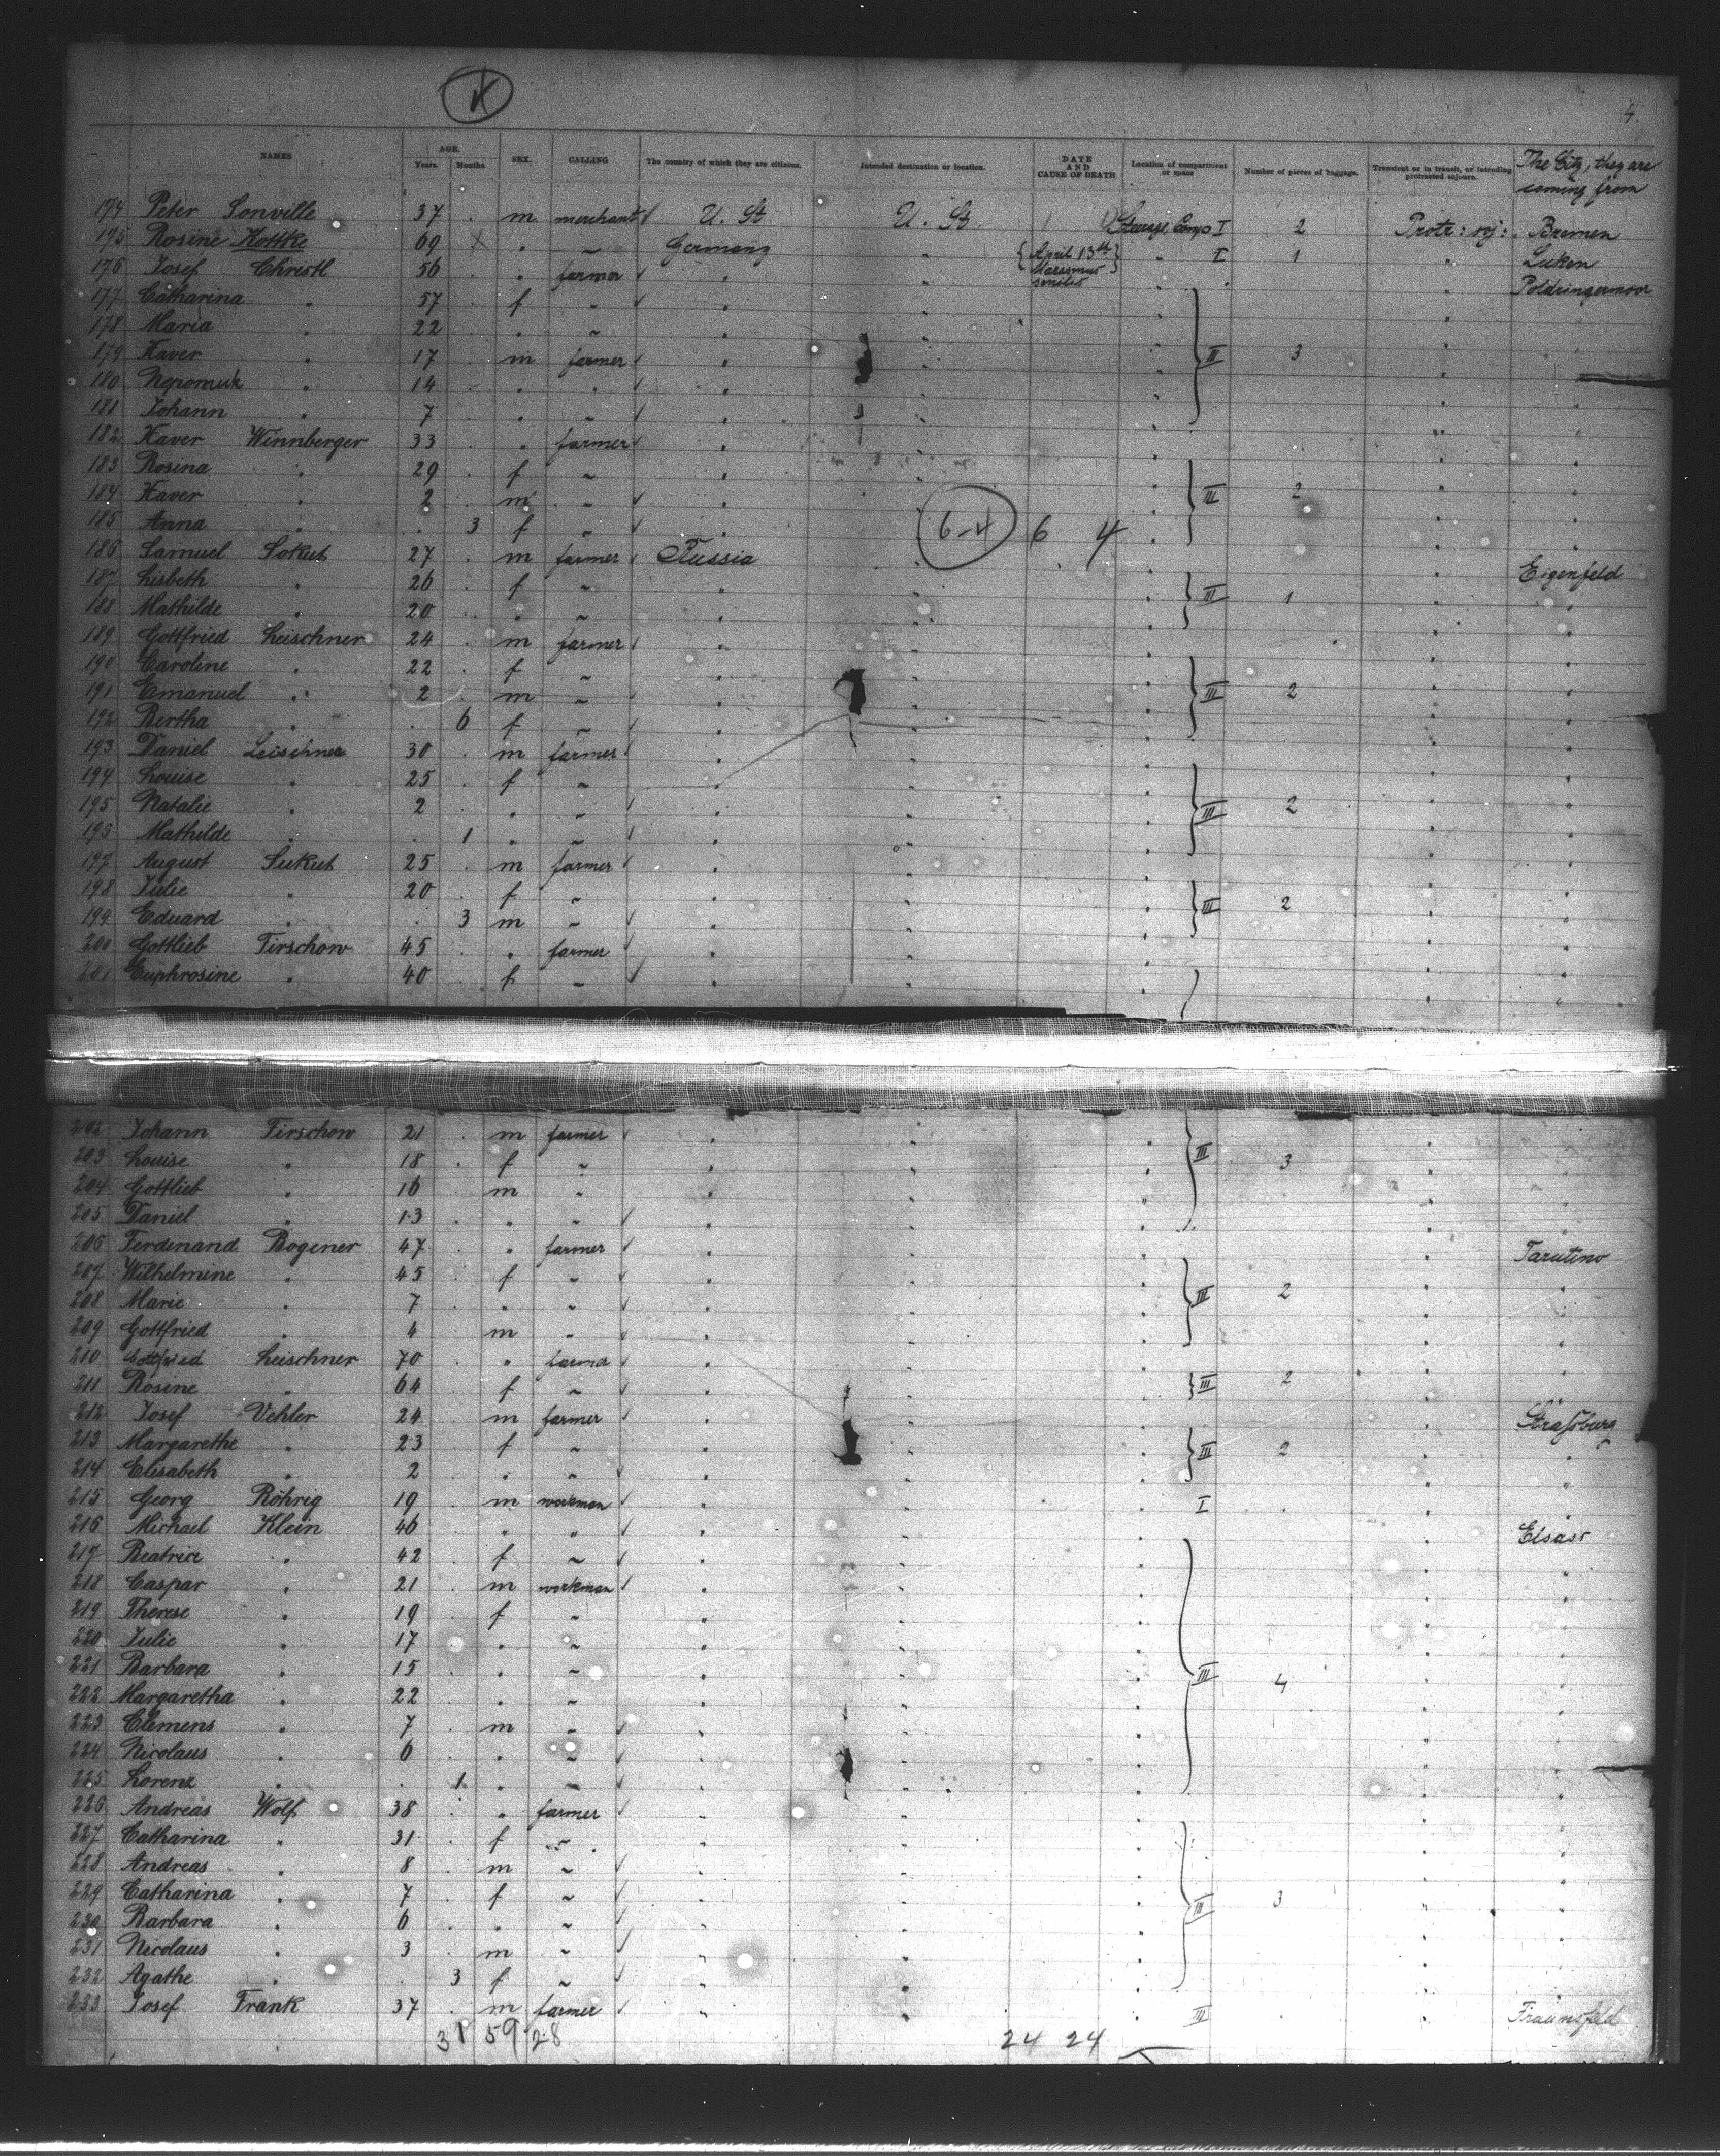 4.
NAMES AGE. Years. Months. SEX. CALLING The country of which they are citizens. Intended destination or location. DATE AND CAUSE OF DEATH Location of compartment or space Number of pieces of baggage. Transient or in transit, or intending protracted sojourn. The City, they are coming from
174 Peter Sonville 37 . m merchant U. St U. St Steerage Comp I 2 Protr: soj: Bremen
175 Rosine Kottke 69 X " ~ Germany " { April 13th Marasmus senilis } " I 1 " Luken
176 Josef Christl 56 . " farmer " " " " Poldringermoor
177 Catharina " 57 . f ~ " " " "
178 Maria " 22 . " ~ " " " "
179 Xaver " 17 . m farmer " " " III 3 " "
180 Nepomuk " 14 . " " " " " " "
181 Johann " 7 . " ~ " " " " "
182 Xaver Winnberger 33 . " farmer " " " " "
183 Rosina " 29 . f ~ " " " " "
184 Xaver " 2 . m ~ " " " III 2 " "
185 Anna " . 3 f ~ " 6-4 6 4 " " "
186 Samuel Sokut 27 . m farmer Russia " " " Eigenfeld
187 Lisbeth " 26 . f ~ " " " III 1 " "
188 Mathilde " 20 . " ~ " " " " "
189 Gottfried Leischner 24 . m farmer " " " " "
190 Caroline " 22 . f ~ " " " " "
191 Emanuel " 2 . m ~ " " " III 2 " "
192 Bertha " . 6 f ~ " " " " "
193 Daniel Leischner 30 . m farmer " " " " "
194 Louise " 25 . f ~ " " " " "
195 Natalie " 2 . " ~ " " " III 2 " "
195 Mathilde " . 1 " ~ " " " " "
197 August Sukut 25 . m farmer " " " " "
198 Julie " 20 . f ~ " " " III 2 " "
199 Eduard " . 3 m ~ " " " " "
200 Gottlieb Firschow 45 . " farmer " " " " "
201 Euphrosine " 40 . f ~ " " " " "
202 Johann Firschow 21 . m farmer " " " III " "
203 Louise " 18 . f ~ " " " 3 " "
204 Gottlieb " 16 . m " " " " " "
205 Daniel " 13 . " " " " " " "
206 Ferdinand Bogener 47 . " farmer " " " " Tarutino
207 Wilhelmine " 45 . f ~ " " " III 2 " "
208 Marie " 7 . " ~ " " " " "
209 Gottfried " 4 . m " " " " " "
210 Gottfried Leischner 70 . " farmer " " " " "
211 Rosine " 64 . f ~ " " " III 2 " "
212 Josef Vehler 24 . m farmer " " " " Straßburg
213 Margarethe " 23 . f ~ " " " III 2 " "
214 Elisabeth " 2 . " ~ " " " " "
215 Georg Röhrig 19 . m workman " " " I . " "
216 Michael Klein 46 . " " " " " " Elsass
217 Beatrice " 42 . f ~ " " " " "
218 Caspar " 21 . m workman " " " " "
219 Therese " 19 . f " " " " " "
220 Julie " 17 . " ~ " " " " "
221 Barbara " 15 . " ~ " " " III 4 " "
222 Margaretha " 22 . " ~ " " " " "
223 Clemens " 7 . m ~ " " " " "
224 Nicolaus " 6 . " ~ " " " " "
225 Lorenz " . 1 " ~ " " " " "
226 Andreas Wolf 38 . " farmer " " " " "
227 Catharina " 31 . f ~ " " " " "
228 Andreas " 8 . m ~ " " " " "
229 Catharina " 7 . f ~ " " " III 3 " "
230 Barbara " 6 . " ~ " " " " "
231 Nicolaus " 3 . m ~ " " " " "
232 Agathe " . 3 f ~ " " " " "
233 Josef Frank 37 . m farmer " " " III . "
31 59 28 24 24